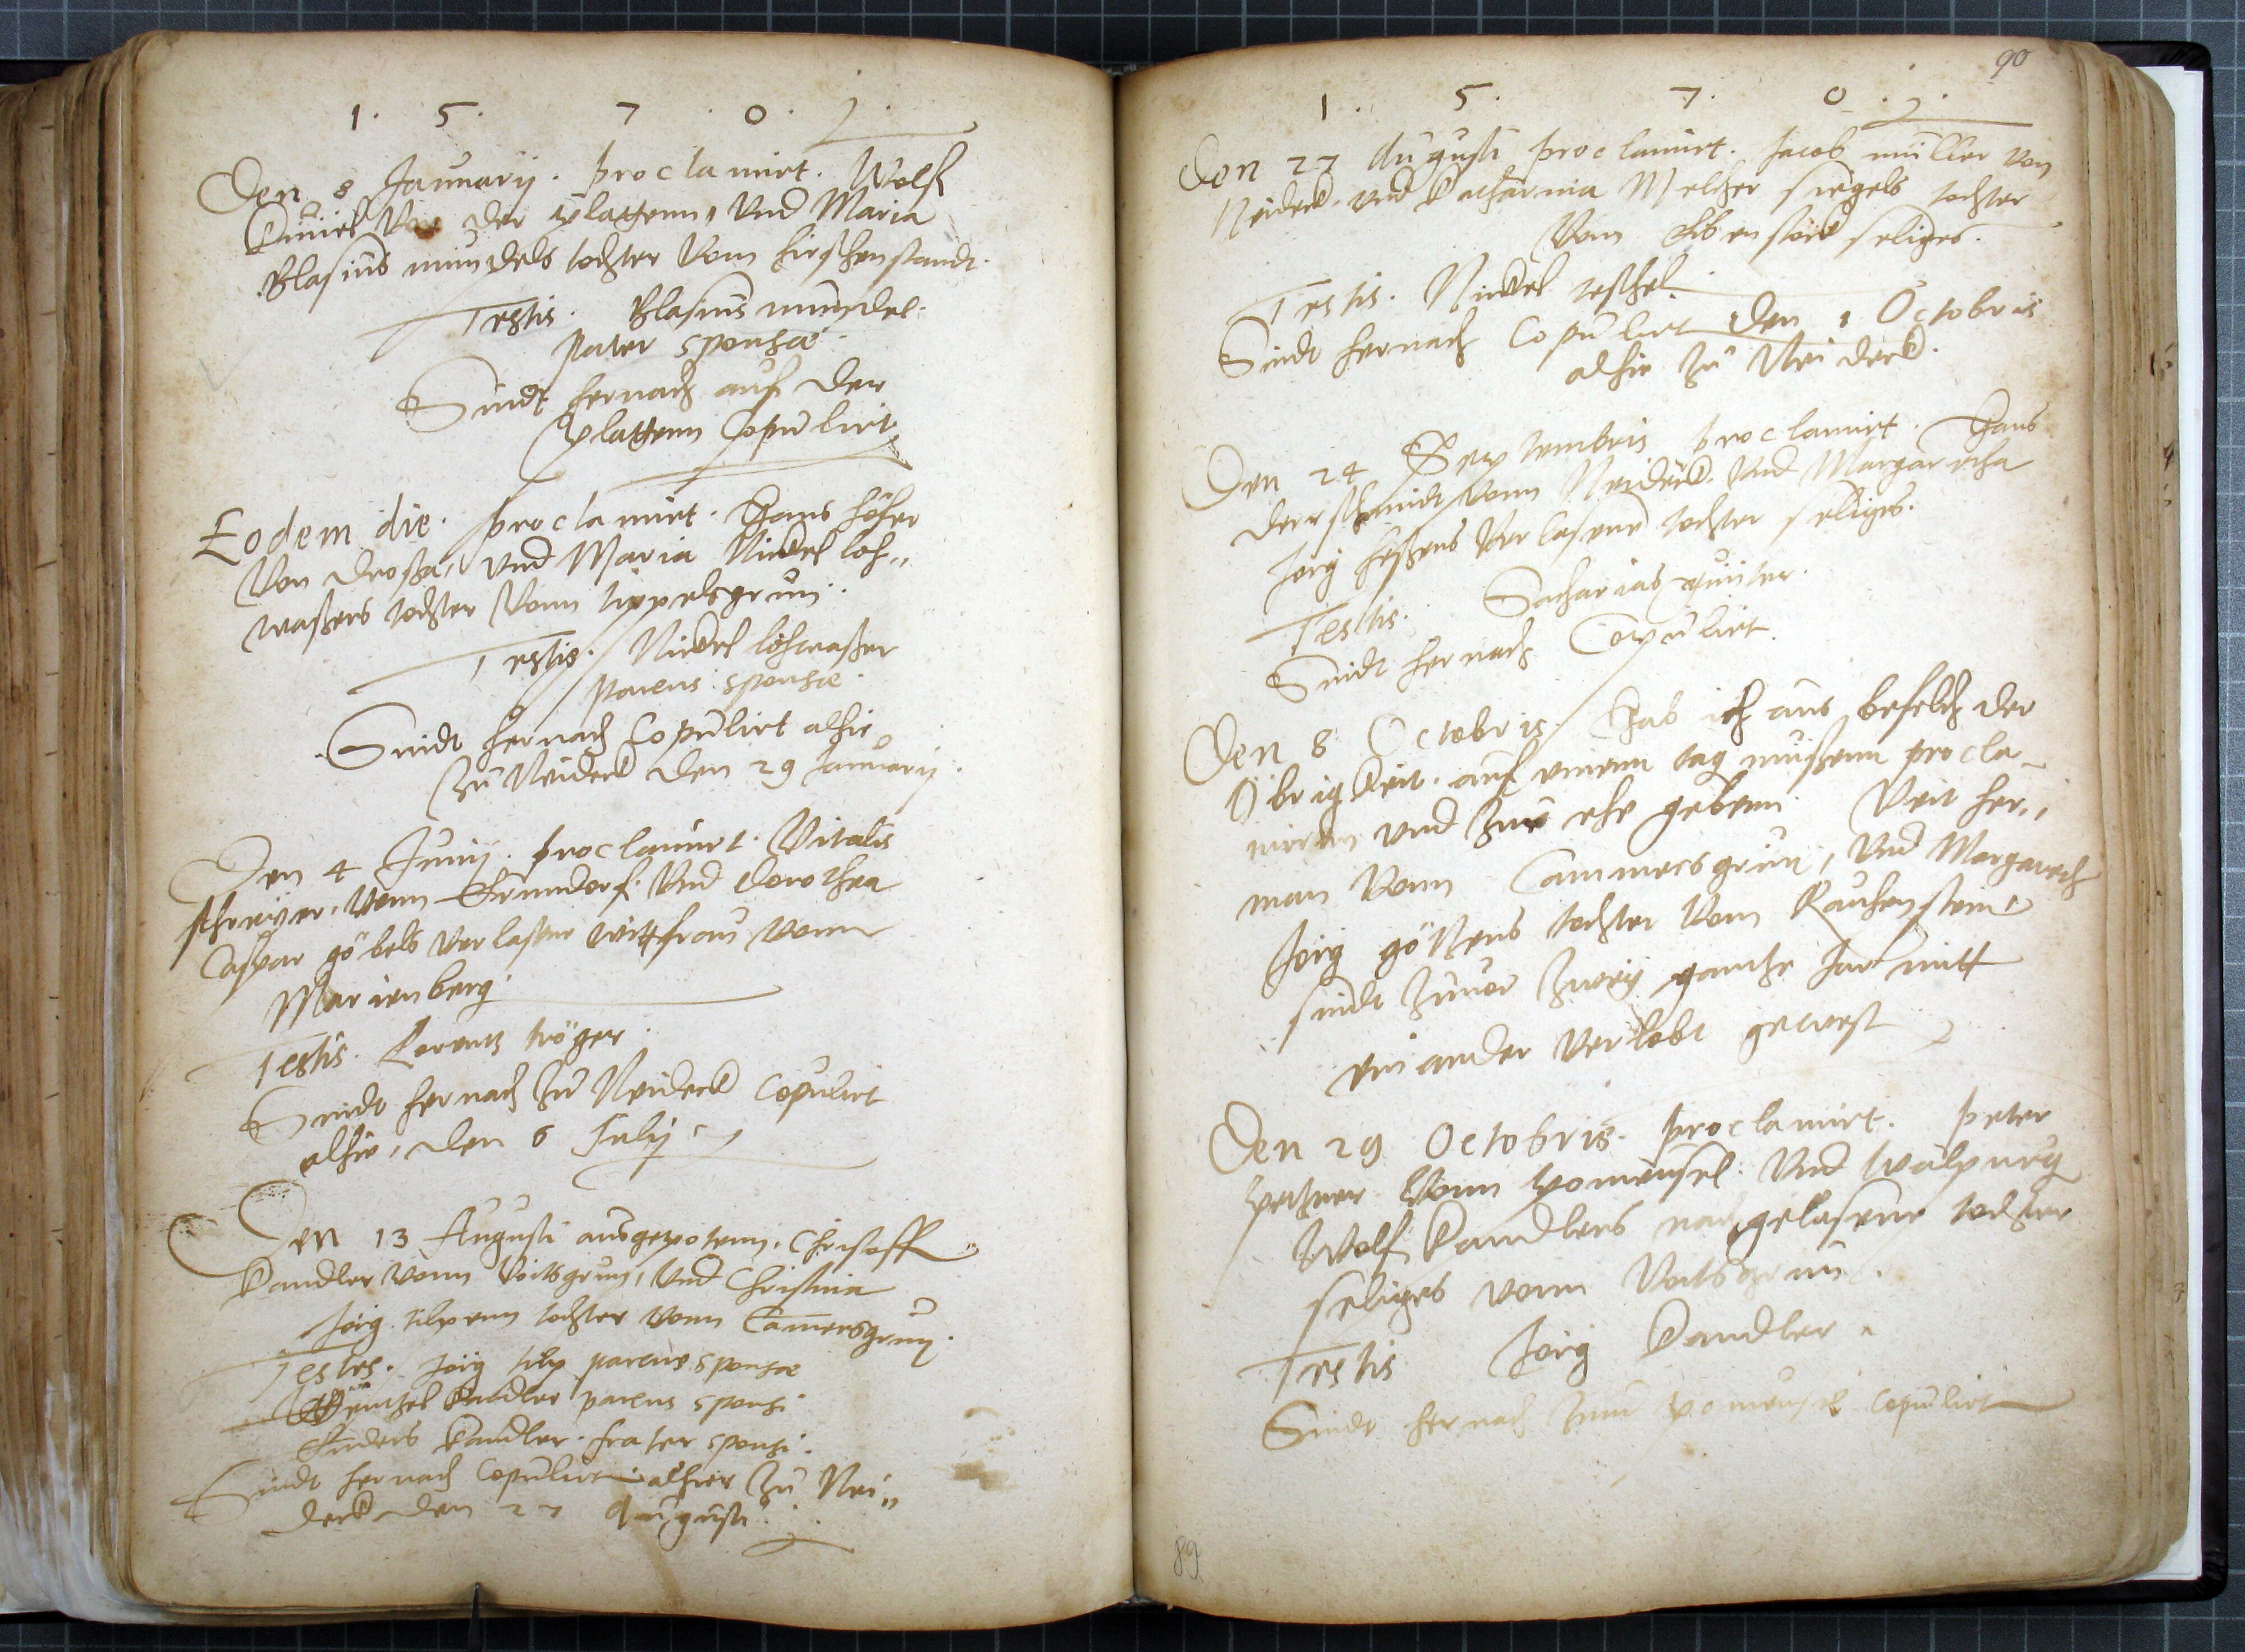 1. 5. 7. 0.
Den 8 Januarij. proclamirt. Wolf
der Plattenn, vnd Maria
Blasius mundels tochter vom hirschenstandt.
Testis. Blasius mundel.
pater sponsae.
Sindt hernach auf der
Plattenn Copulirt
Eodem die. proclamirt. Hans höfer
Von vnd Maria Nickel loh„
waßers tochter Vonn tippelsgrun.
Testis. Nickel lohwaßer
parens sponsae.
Sindt hernach Copulirt alhie
Zu Neideck den 29 Januarij.
Den 4 Junij. proclamirt. Vitalis
schreijer, Vonn vnd Dorothea
Caspar göbels verlaßene wittfrau vonn
Marienberg.
Testis. Lorentz tröger.
Sindt hernach zu Neideck Copulirt
alhie, den 6 Julij
Den 13 Augusti ausgepotenn. Christoff
kandler vonn Voitsgrun, vnd Christina
Jörg tilpenn tochter vonn Camersgrun.
Testes. Jörg tilp parens sponsae
Wentzel kandler parens sponsi
Enders kandler. frater sponsi.
Sindt hernach Copulirt alhier zu Nei„
deck den 27 Augusti.
90
1. 5. 7. 0.
Den 27 Augusti proclamirt. Jacob müller von
Neideck. vnd Catharina Melcher siegels tochter
Vom Eibenstock seliges.
Testis. Nickel
Sindt hernach Copulirt den 1 Octobris
alhie zu Neideck.
Den 24 Septembris proclamirt. Hans
vonn Neideck. vnd Margaretha
Jörg verlasene tochter seliges.
Testis. Sacharias
Sindt hernach Copulirt.
Den 8 Octobris. Hab ich aus befelch der
Obrigkeit. auf einenn tag mußenn procla„
miren vnd zur ehe gebenn. Veit her„
man Vonn Cammersgrun, vnd Margareth
Jörg götzens tochter vom Rauhenstein
sindt zuuor zweij gantze Jar mitt
einander verlobt gewest
Den 29 Octobris. proclamirt. peter
Vonn pomeusel. vnd walpurg
Wolf kandlers nachgelasene tochter
seliges vonn Voitsgrun.
Testis Jörg kandler.
Sindt hernach zum pomeusel copulirt
89